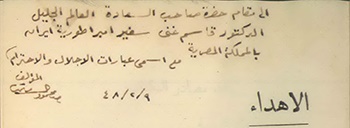 الى مقام حضرة صاحب السعادة العالم الجليل
الدكتور قاسم غنى سفير امبراطورية ايران
بالمملكة المصرية
مع اسمى عبارات الاجلال والاحترام
المؤلف
٤٨/٢/٩
الاهداء